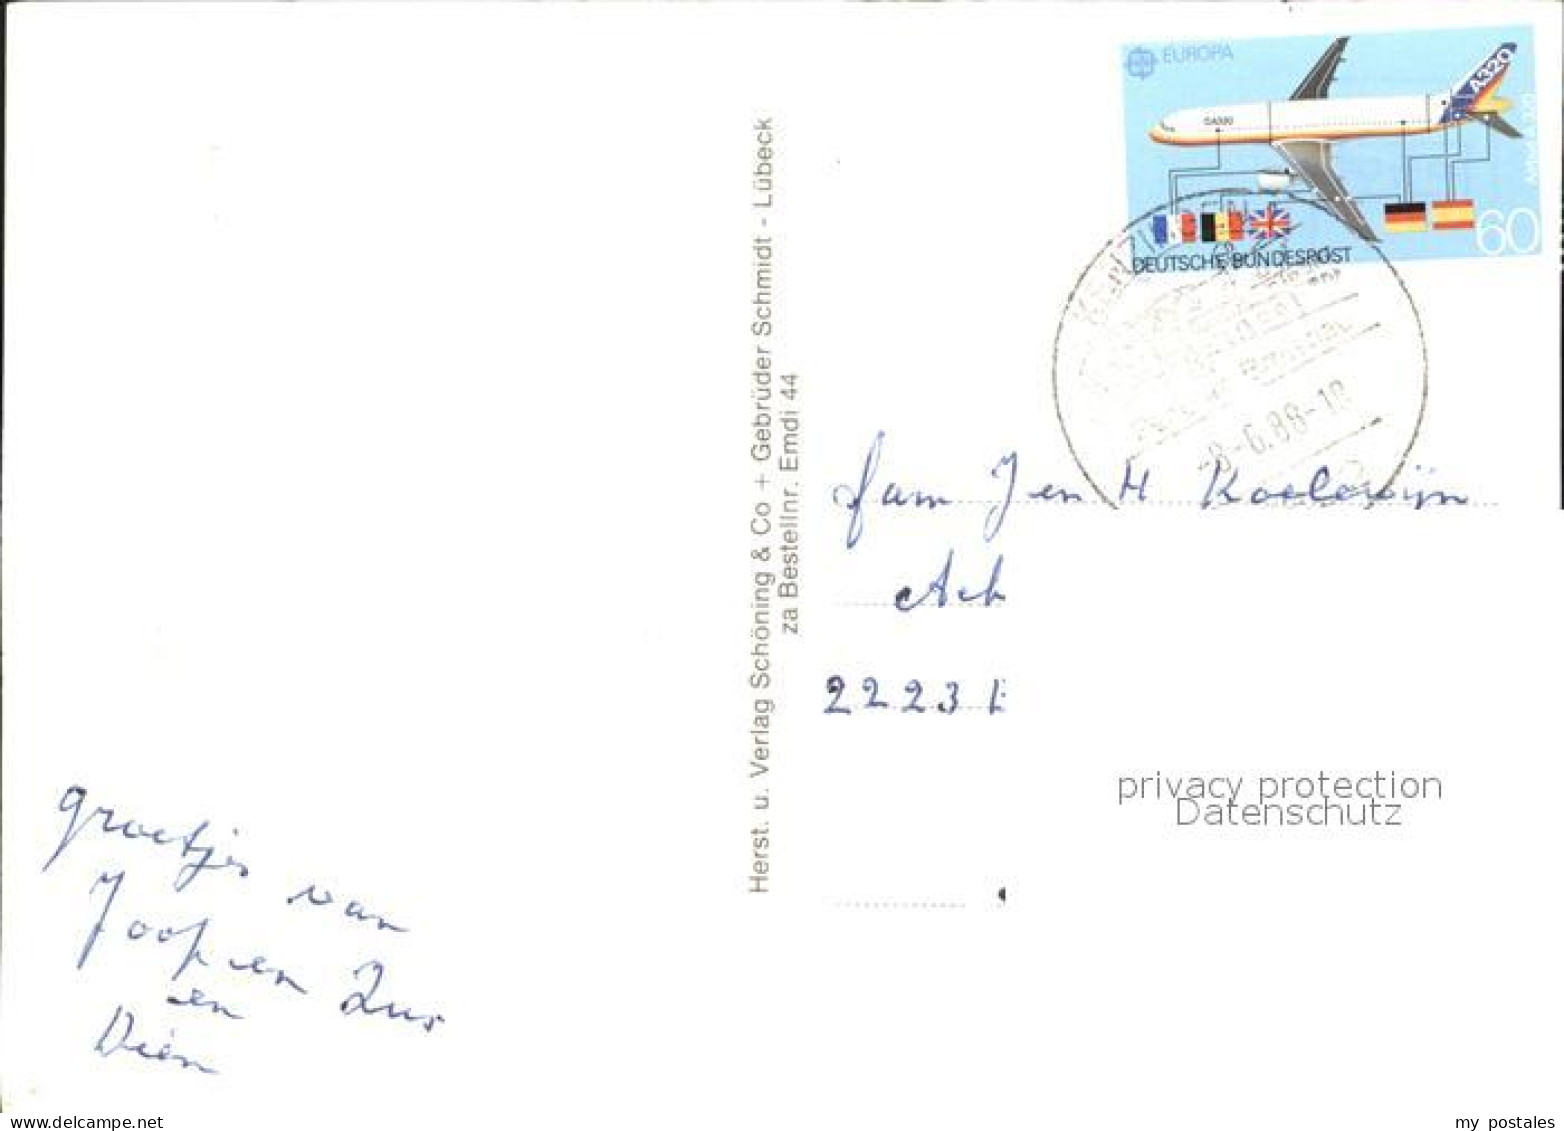 EUROPA
A320
Airbus A320
60
DEUTSCHE BUNDESPOST
-8-6.88-18
Herst. u. Verlag Schöning & Co + Gebrüder Schmidt - Lübeck
za Bestellnr. Emdi 44
fam J en H Koelewijn
2223
groetjes van
Joop en Zus
en
Dien
privacy protection
Datenschutz
www.delcampe.net
my postales